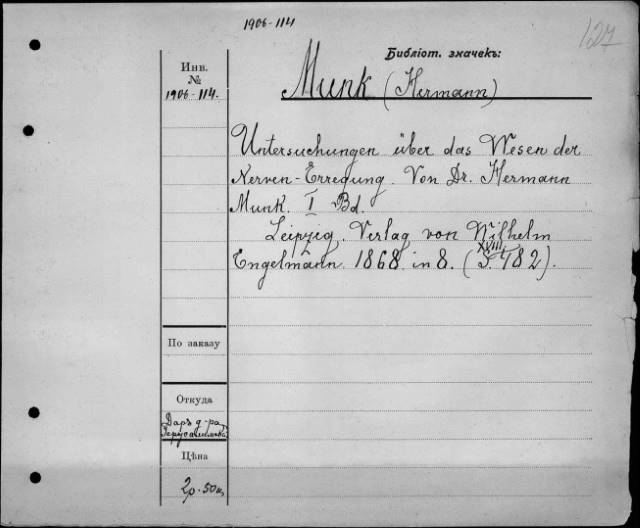 1906-114
127
Инв.
№
1906-114.
Библіот. значекъ:
Munk (Hermann)
Untersuchungen über das Wesen der
Nerven-Erregung. Von Dr. Hermann
Munk. I Bd.
Leipzig. Verlag von Wilhelm
Engelmann 1868 in 8. (XVIII, S. 482).
По заказу
Откуда
Даръ д-ра
Цѣна
2р. 50к.